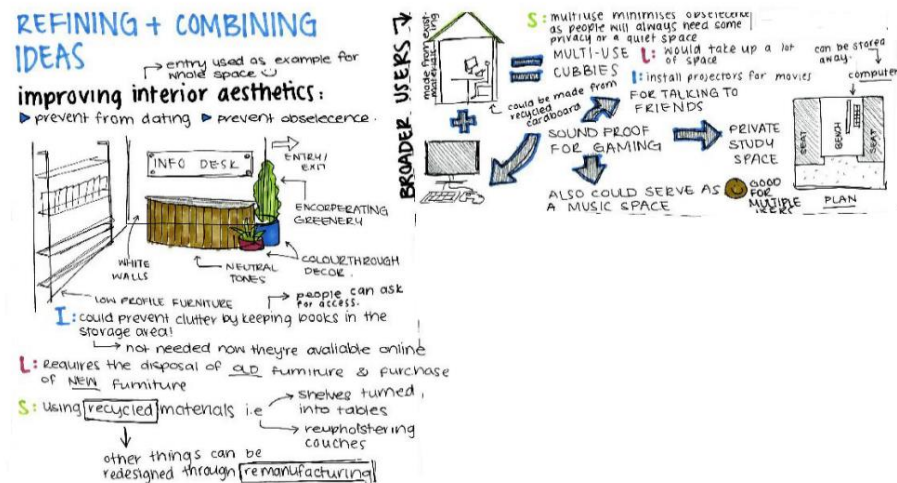 REFINING + COMBINING
IDEAS
entry used as example for
whole space
improving interior aesthetics:
prevent from dating prevent obselecence.
INFO DESK
ENTRY/
EXIT
ENCORPERATING
GREENERY
WHITE
WALLS
NEUTRAL
TONES
COLOURTHROUGH
DECOR.
LOW PROFILE FURNITURE
people can ask
for access.
I: could prevent clutter by keeping books in the
storage area!
not needed now they're available online
L: Requires the disposal of OLD furniture & purchase
of NEW furniture
S: using recycled materials i.e
shelves turned
into tables
reupholstering
couches
other things can be
redesigned through remanufacturing
BROADER USERS
made from existing
materials
S: multiuse minimises obselecence
as people will always need some
privacy or a quiet space
MULTI-USE
CUBBIES
L: would take up a lot
of space
I: install projectors for movies
could be made from
recycled
cardboard
FOR TALKING TO
FRIENDS
SOUND PROOF
FOR GAMING
PRIVATE
STUDY
SPACE
ALSO COULD SERVE AS
A MUSIC SPACE
GOOD
FOR
MULTIPLE
USERS
can be stored
away.
computer
SEAT
BENCH
SEAT
PLAN